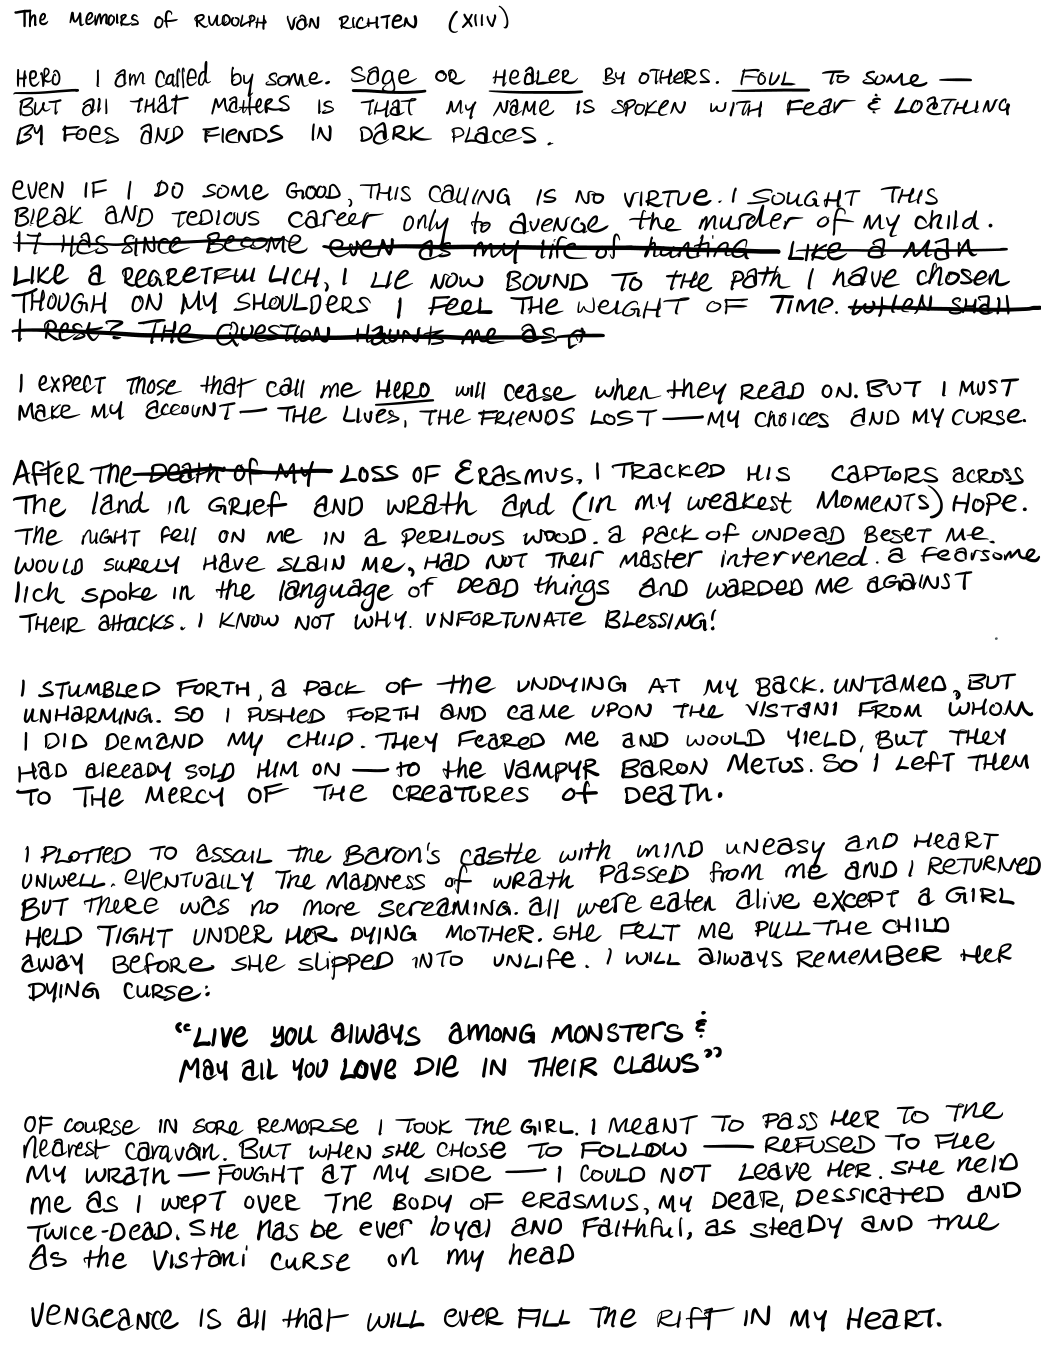 The Memoirs of RUDOLPH VAN RICHTEN (XIIV)
HERO I am called by some. Sage OR HEALER BY OTHERS. FOUL TO SOME —
BUT all THAT MATTERS IS THAT MY NAME IS SPOKEN WITH FEAR & LOATHING
BY FOES AND FIENDS IN DARK PLACES.
EVEN IF I DO SOME GOOD, THIS CALLING IS NO VIRTUE. I SOUGHT THIS
BLEAK AND TEDIOUS career only to avenge the murder of MY child.
IT HAS SINCE BECOME even as my life of hunting LIKE A MAN
LIKE A REGRETFUL LICH, I LIE NOW BOUND TO THE PATH I have chosen
THOUGH ON MY SHOULDERS I FEEL THE WEIGHT OF TIME. WHEN SHALL
I REST? THE QUESTION HAUNTS me as a
I EXPECT THOSE that call me HERO will cease when they READ ON. BUT I MUST
MAKE MY ACCOUNT — THE LIVES, THE FRIENDS LOST — MY CHOICES AND MY CURSE.
AFTER THE DEATH OF MY LOSS OF ERASMUS, I TRACKED HIS CAPTORS ACROSS
THE land in GRIEF AND WRATH and (IN my weakest MOMENTS) HOPE.
THE NIGHT FELL ON ME IN A PERILOUS WOOD. A PACK OF UNDEAD BESET ME.
WOULD SURELY HAVE SLAIN ME, HAD NOT THEIR MASTER intervened. a fearsome
lich spoke in the language of DEAD things AND WARDED ME AGAINST
THEIR attacks. I KNOW NOT WHY. UNFORTUNATE BLESSING!
I STUMBLED FORTH, A PACK OF the UNDYING AT MY BACK. UNTAMED, BUT
UNHARMING. SO I PUSHED FORTH AND CAME UPON THE VISTANI FROM WHOM
I DID DEMAND MY CHILD. THEY FEARED ME AND WOULD YIELD, BUT THEY
HAD ALREADY SOLD HIM ON — to the VAMPYR BARON METUS. SO I LEFT THEM
TO THE MERCY OF THE CREATURES OF DEATH.
I PLOTTED TO ASSAIL the BARON'S castle with MIND UNEASY AND HEART
UNWELL. EVENTUALLY THE MADNESS of WRATH PASSED from me AND I RETURNED
BUT THERE was no more SCREAMING. all were eaten alive EXCEPT A GIRL
HELD TIGHT UNDER HER DYING MOTHER. SHE FELT ME PULL THE CHILD
away BEFORE SHE SLIPPED INTO UNLIFE. I WILL ALWAYS REMEMBER HER
DYING CURSE:
"LIVE YOU ALWAYS AMONG MONSTERS &
MAY ALL YOU LOVE DIE IN THEIR CLAWS"
OF COURSE IN SORE REMORSE I TOOK THE GIRL. I MEANT TO PASS HER TO THE
nearest caravan. BUT WHEN SHE CHOSE TO FOLLOW — REFUSED TO FLEE
MY WRATH — FOUGHT AT MY SIDE — I COULD NOT LEAVE HER. SHE HELD
me as I WEPT OVER THE BODY OF ERASMUS, MY DEAR, DESSICATED AND
TWICE-DEAD. SHE HAS BE EVER LOYAL AND FAITHFUL, AS STEADY AND true
AS the VISTANI CURSE on my head
VENGEANCE IS all that WILL EVER FILL THE RIFT IN MY HEART.